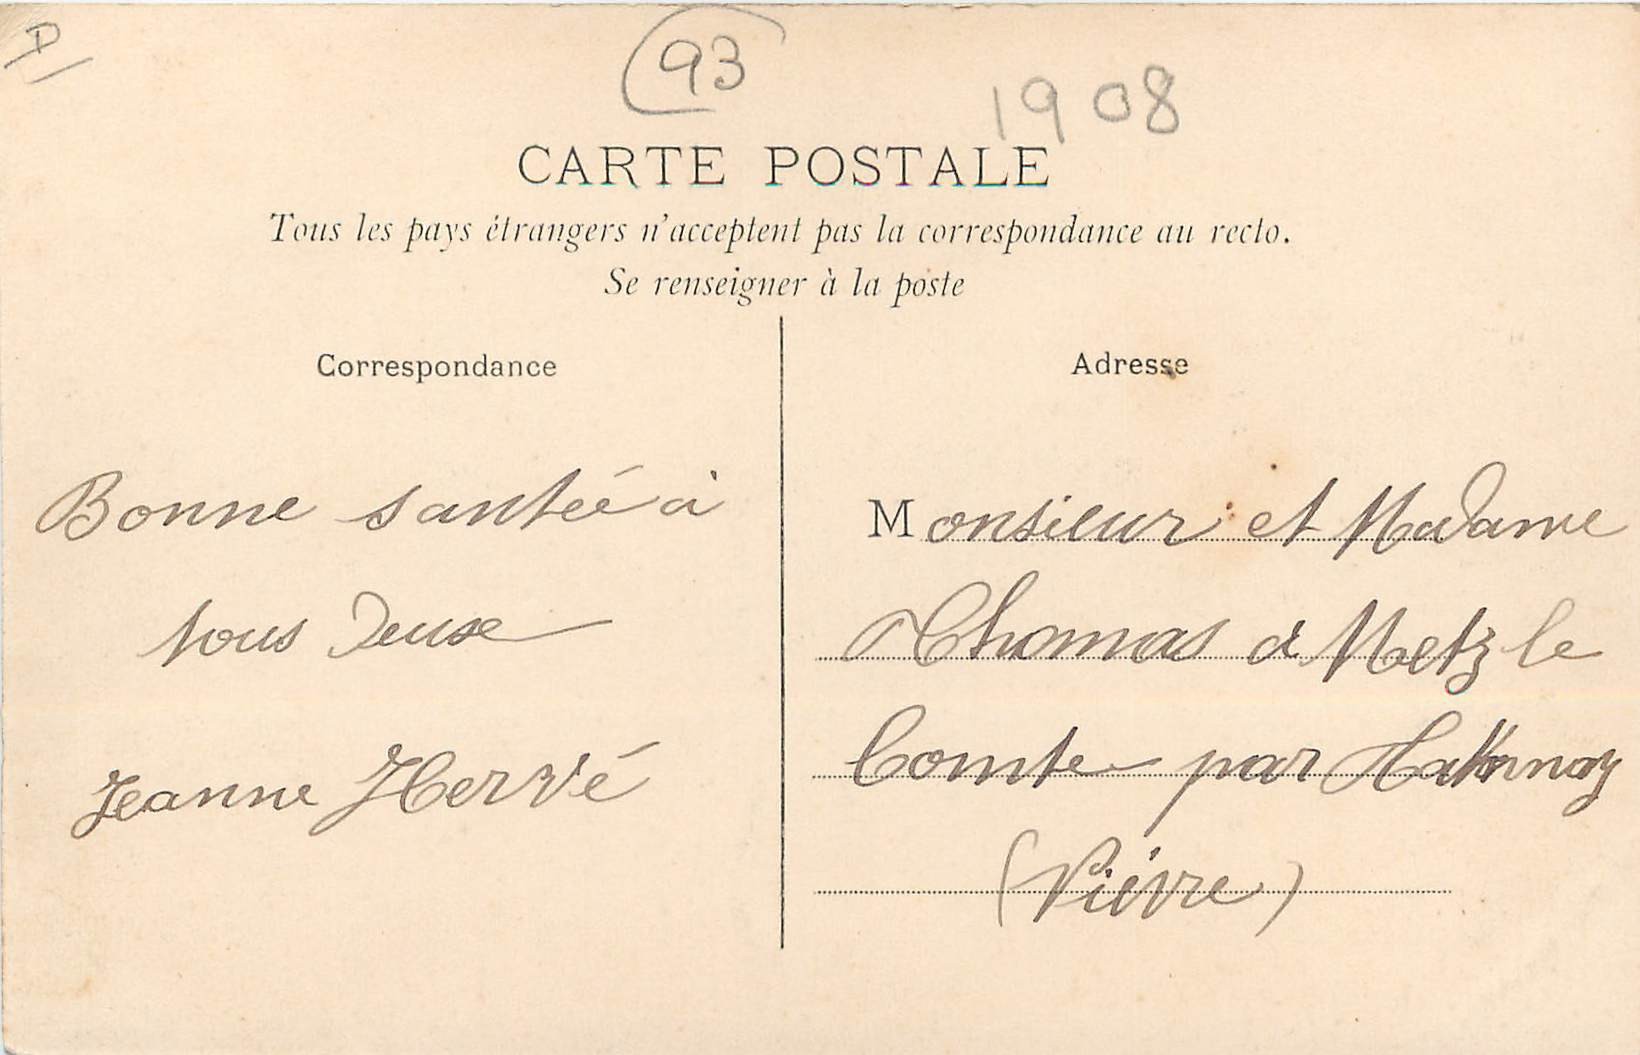 D
93
1908
CARTE POSTALE
Tous les pays étrangers n'acceptent pas la correspondance au recto.
Se renseigner à la poste
Correspondance
Bonne santée à
tous deuse
Jeanne Hervé
Adresse
Monsieur et Madame
Thomas à Metz le
Comte par
(Nièvre)